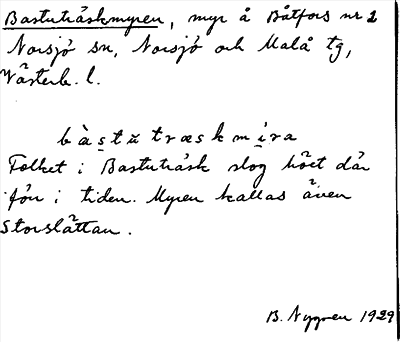 Bastuträskmyren, myr å Båtfors nr 2
Norsjö sn, Norsjö och Malå tg,
Västerb. l.
bàstu̇træskmi̭ra
Folket i Bastuträsk slog höet där
förr i tiden. Myren kallas även
Storslåttan.
B. Nygren 1929